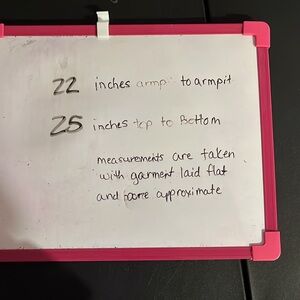 22 inches armpit to armpit
25 inches top to Bottom
measurements are taken
with garment laid flat
and are approximate